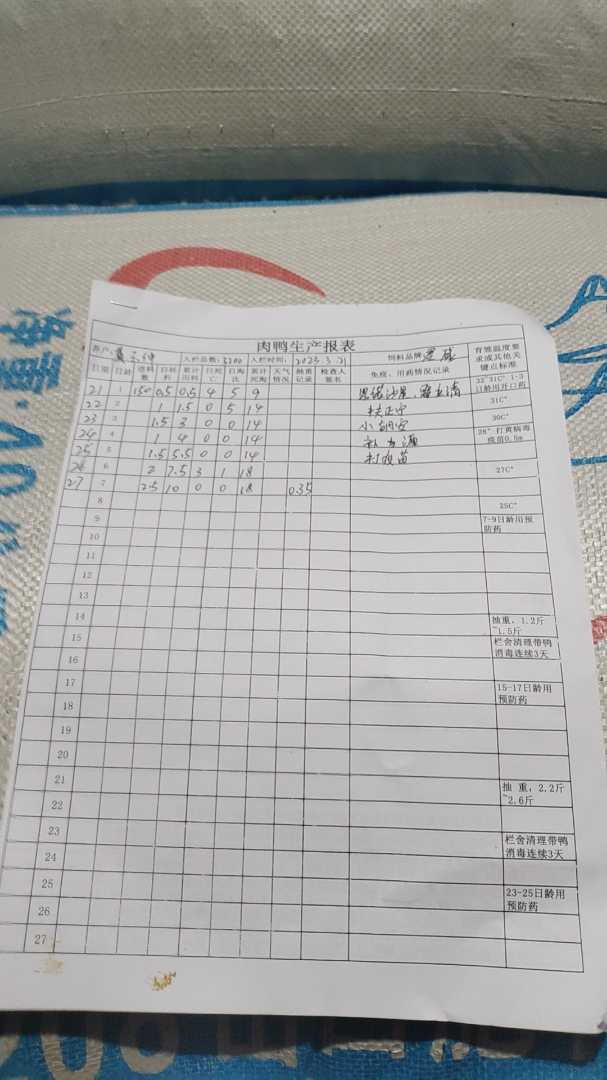 肉鸭生产报表
客户: 入栏总数: 3200 入栏时间: 2023.3.21 饲料品牌
日期 日龄 进料数 日耗料 累计用料 日死亡 日淘汰 累计死淘 天气情况 抽重记录 检查人签名 免疫、用药情况记录 育雏温度要求或其他关键点标准
21 1 150 0.5 0.5 4 5 9 恩诺沙星、 33°31C° 1-3日龄用开口药
22 2 1 1.5 0 5 14 扶正 31C°
23 3 1.5 3 0 0 14 30C°
24 4 1 4 0 0 14 28° 打黄病毒疫苗0.5m
25 5 1.5 5.5 0 0 14 打疫苗
26 6 2 7.5 3 1 18 27C°
27 7 2.5 10 0 0 18 0.35
8 25C°
9 7-9日龄用预防药
10
11
12
13
14 抽重，1.2斤~1.5斤
15 栏舍清理带鸭消毒连续3天
16
17 15-17日龄用预防药
18
19
20
21 抽 重，2.2斤~2.6斤
22
23 栏舍清理带鸭消毒连续3天
24
25 23-25日龄用预防药
26
27
净重:40